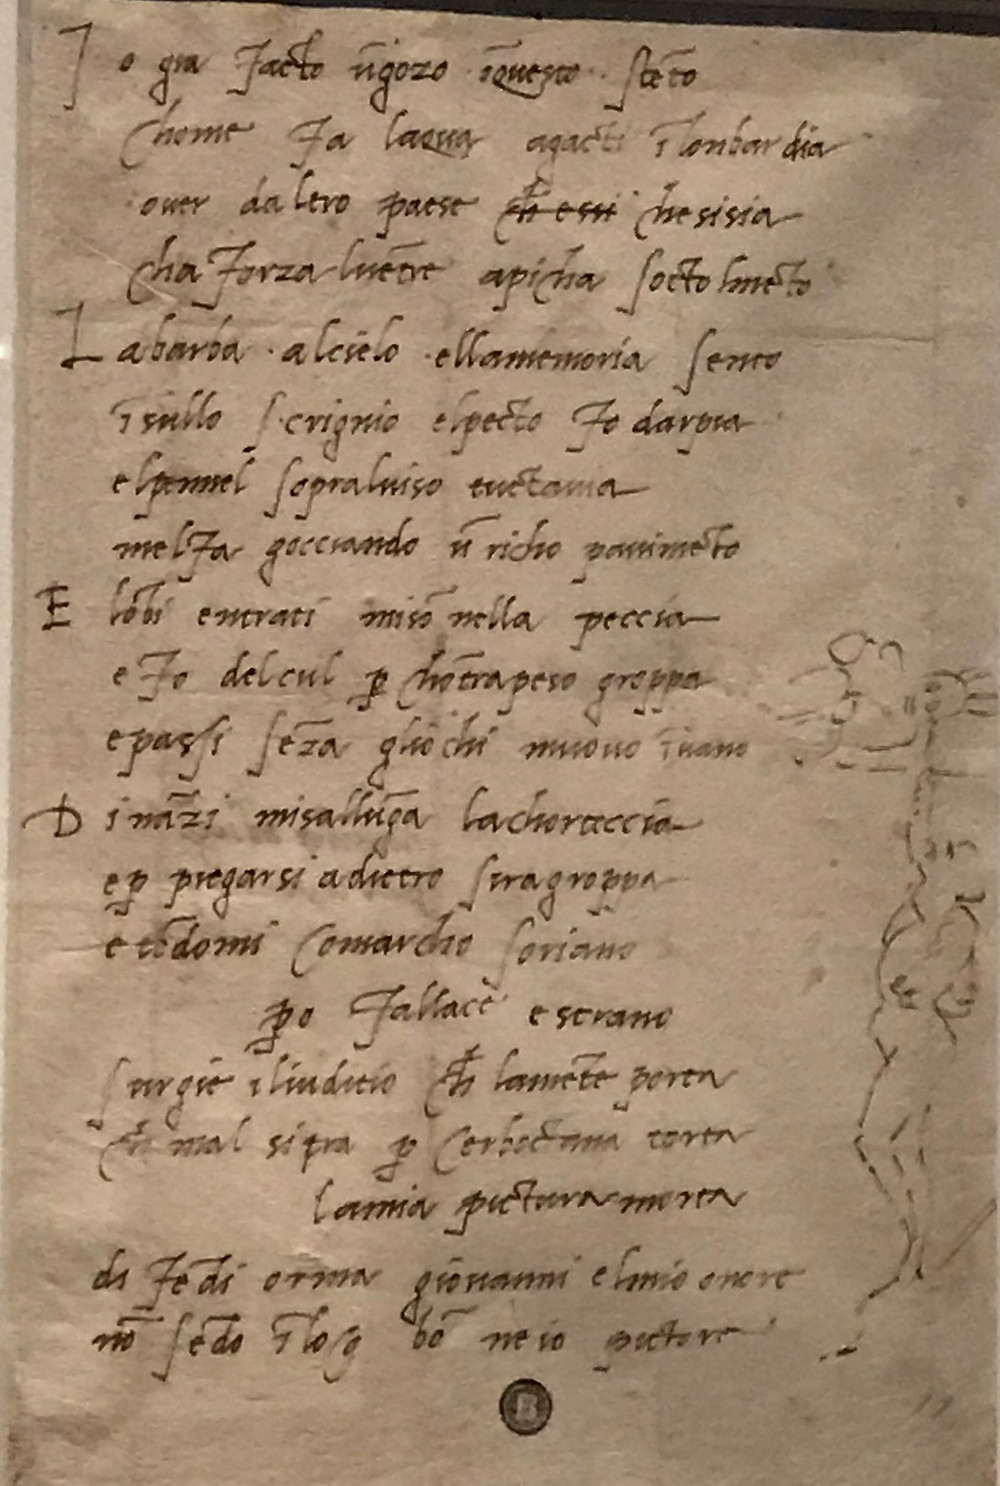 I o gia facto ūgozo ī questo stēto
chome fa laqua agacti ī lonbardia
over daltro paese ch̄ essi che sisia
cha forza lvētre apicha socto lmēto
L abarba alcielo ellamemoria sento
ī sullo scrignio elpecto fo darpia
elpennel sopralviso tuctavia
melfa gocciando ū richo pavimēto
E lōbi entrati misō nella peccia
e fo delcul p̱ chōtrapeso groppa
epassi sēza gliochi muovo īvano
D ināzi misallūga lachorteccia
ep̱ piegarsi adietro siragroppa
e tēdomi Comarcho soriano
p̱o fallace e strano
surgie iliuditio ch̄ lamēte porta
ch̄ mal sitra p̱ Cerboctana torta
lamia pictura morta
di fēdi orma giovanni elmio onore
nō sēdo ī log bō ne io pictore